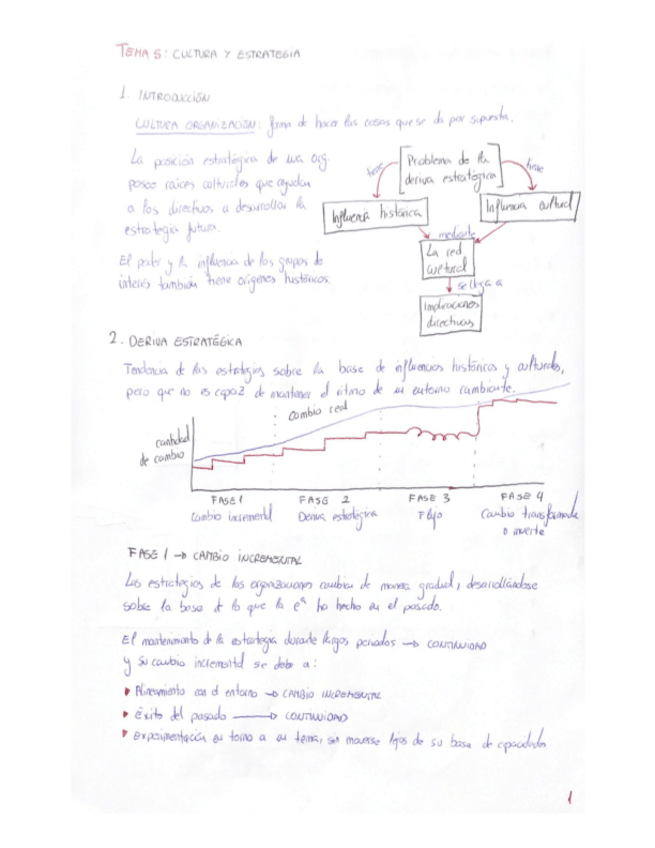 TEMA 5: CULTURA Y ESTRATEGIA
1. INTRODUCCIÓN
CULTURA ORGANIZACIÓN: forma de hacer las cosas que se da por supuesta.
La posición estratégica de una org.
posee raíces culturales que ayudan
a los directivos a desarrollar la
estrategia futura.
El poder y la influencia de los grupos de
interés también tiene orígenes históricos.
Problema de la
deriva estratégica
tiene
tiene
Influencia histórica
Influencia cultural
mediante
La red
cultural
se llega a
Implicaciones
directivas
2. DERIVA ESTRATÉGICA
Tendencia de las estrategias sobre la base de influencias históricas y culturales,
pero que no es capaz de mantener el ritmo de su entorno cambiante.
cambio real
cantidad
de cambio
FASE 1
FASE 2
FASE 3
FASE 4
Cambio incremental
Deriva estratégica
Flujo
Cambio transformador
o muerte
FASE 1 → CAMBIO INCREMENTAL
Las estrategias de las organizaciones cambian de manera gradual, desarrollándose
sobre la base de lo que la eª ha hecho en el pasado.
El mantenimiento de la estrategia durante largos periodos → CONTINUIDAD
y su cambio incremental se debe a:
Alineamiento con el entorno → CAMBIO INCREMENTAL
Éxito del pasado → CONTINUIDAD
Experimentación en torno a un tema, sin moverse lejos de su base de capacidades
1